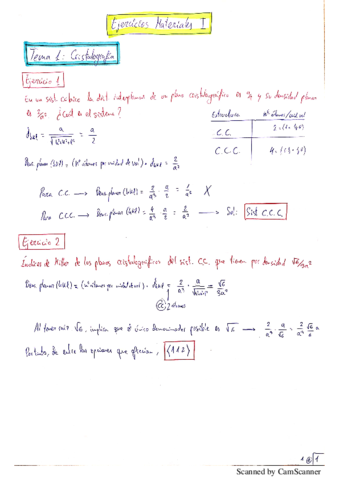 Ejercicios Materiales I
Tema 1: Cristalografía
Ejercicio 1
En un sist. cúbico la dist. interplanar de un plano cristalográfico es a/2 y su densidad planar
es 2/a². ¿Cuál es el sistema?
Estructura Nº átomos/celd. ud
C.C. 2
C.C.C. 4
d = a/√ = a/2
Dens. planar (hkl) = (nº átomos por unidad de vol.) · d
Para C.C. → Dens. planar (hkl) = 2/a³ · a/2 = 1/a² X
Para C.C.C. → Dens. planar (hkl) = 4/a³ · a/2 = 2/a² → Sol: Sist C.C.C.
Ejercicio 2
Índices de Miller de los planos cristalográficos del sist. C.C. que tienen por densidad
Dens. planar (hkl) = (nº átomos por unidad de vol.) · d = 2/a³ · a/√
CC 2 átomos
Al tener raíz √6, implica que el único denominador posible es √6 → 2/a³ · a/√6
Por tanto, de entre las opciones que ofrecían, {112}
1
Scanned by CamScanner